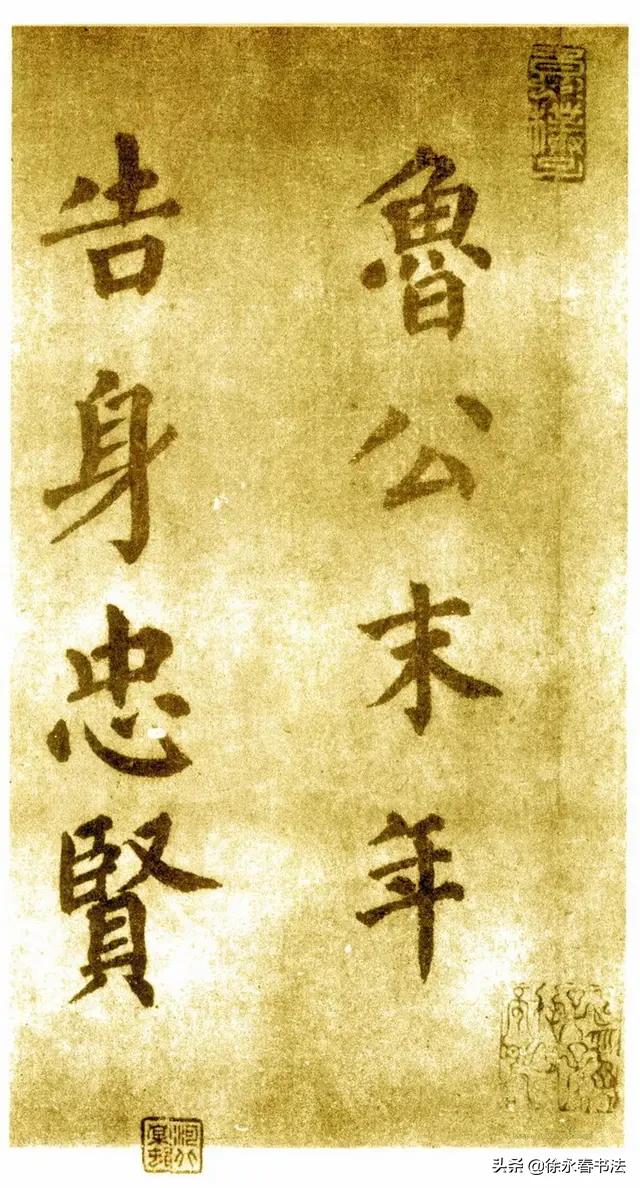 魯公末年
告身忠賢
头条 @徐永春书法